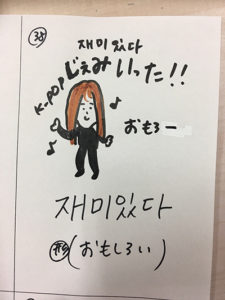 35
재미있다
じぇみいった!!
K-POP
おもろー
재미있다
(おもしろい)